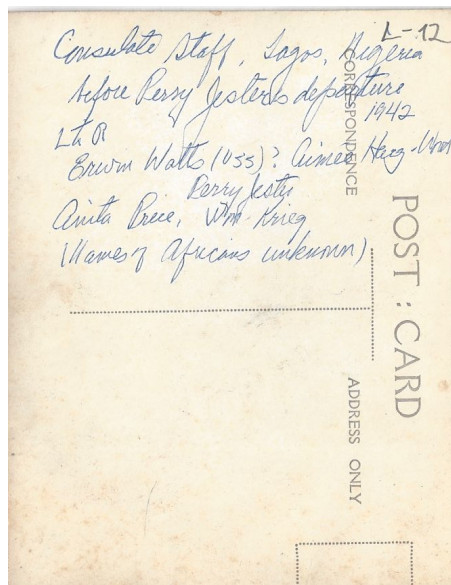 L-12
Consulate Staff, Lagos, Nigeria
before Perry Jester's departure
1942
L to R
Erwin Watts (OSS)? Aimee
Perry Jester
Anita Price, Wm. Krieg
(Names of Africans unknown)
CORRESPONDENCE
POST : CARD
ADDRESS ONLY